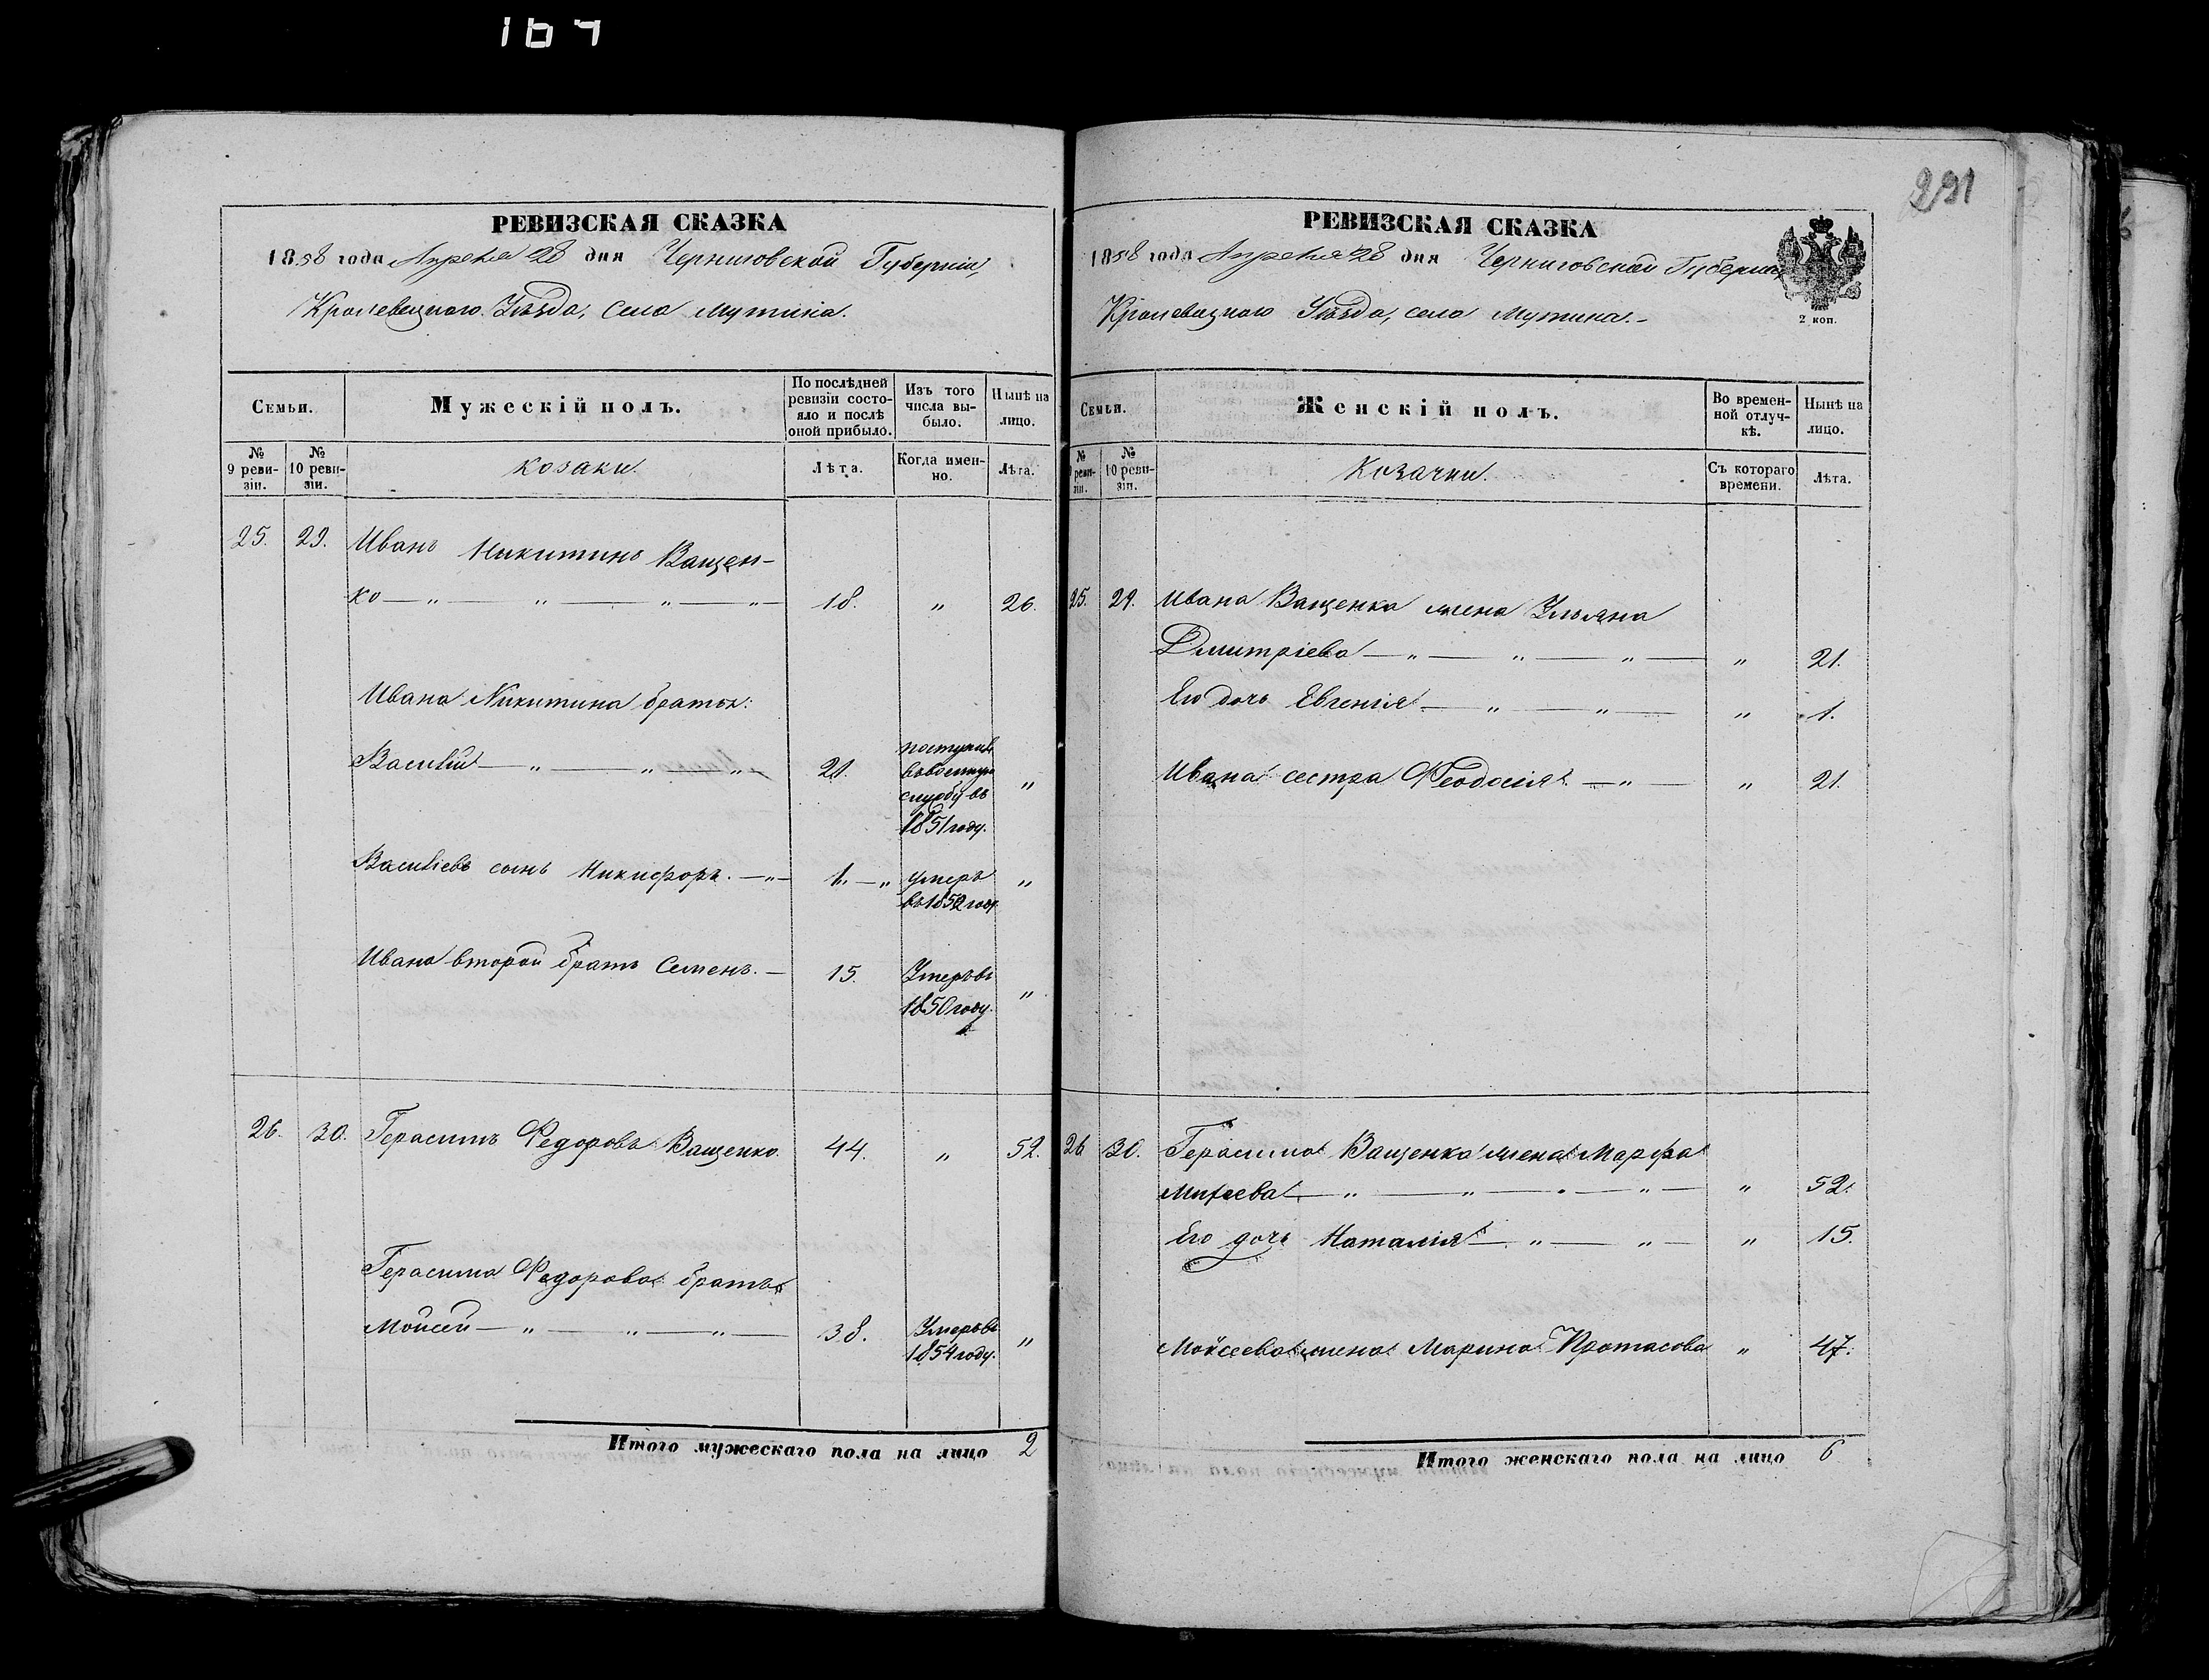 167
291
РЕВИЗСКАЯ СКАЗКА
1858 года Апреля 28 дня Черниговской Губерніи
Кролевецкаго Уѣзда, села Мутина.
Семьи.
Мужескій полъ.
По послѣдней ревизіи состояло и послѣ оной прибыло.
Изъ того числа выбыло.
Нынѣ на лицо.
№ 9 ревизіи.
№ 10 ревизіи.
козаки.
Лѣта.
Когда именно.
Лѣта.
25. 29. Иванъ Никитинъ Ващен-
ко — „ — „ — „ — „ — 18. „ 26.
Ивана Никитина братъ:
Василій — „ — „ — „ — 21. поступилъ
въ военную „
службу въ
1851 году.
Васильевъ сынъ Никифоръ. — „ — 1. — „ умеръ „
въ 1852 году
Ивана второй братъ Семенъ. — 15. Умеръ въ „
1850 году.
26. 30. Герасимъ Федоровъ Ващенко. 44. „ 52.
Герасима Федорова братъ
Мойсей — „ — „ — „ — 38. Умеръ въ „
1854 году.
Итого мужескаго пола на лицо 2
РЕВИЗСКАЯ СКАЗКА
1858 года Апреля 28 дня Черниговской Губерніи
Кролевецкаго Уѣзда, села Мутина.—
2 коп.
Семьи.
Женскій полъ.
Во временной отлучкѣ.
Нынѣ на лицо.
№ 9 ревизіи.
№ 10 ревизіи.
Козачки.
Съ котораго времени.
Лѣта.
25. 29. Ивана Ващенка жена Ульяна
Дмитріева — „ — „ — „ — „ 21.
Его дочь Евгенія — „ — „ — „ 1.
Ивана сестра Феодосія. — „ — „ 21.
26 30. Герасима Ващенка жена Марфа
Михеева — „ — „ — „ — „ — „ 52.
Его дочь Наталія — „ — „ — „ 15.
Мойсеева жена Марина Протасова „ 47.
Итого женскаго пола на лицо 6